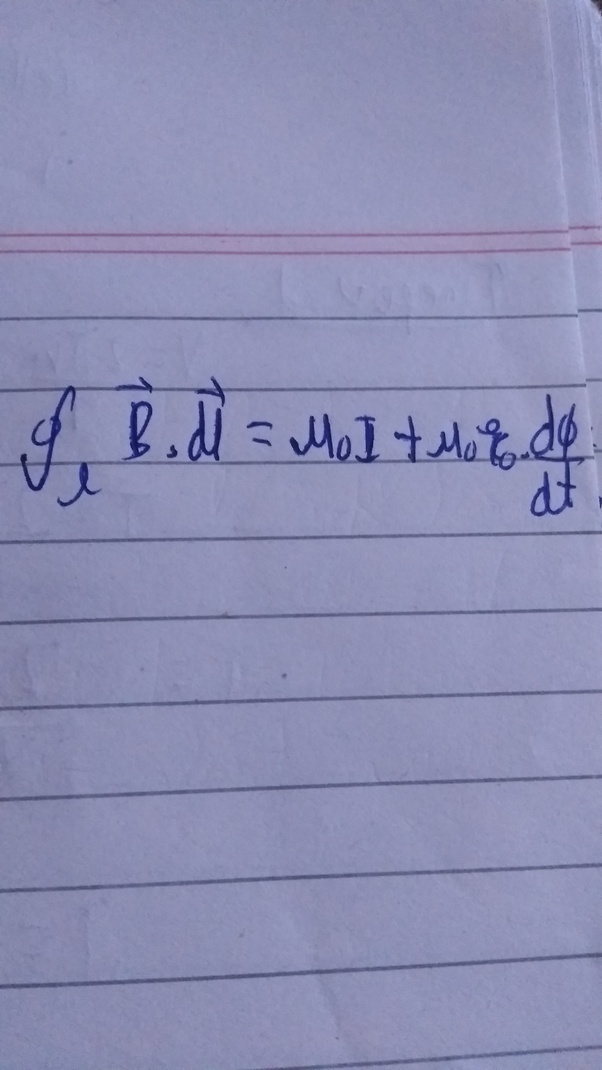 ∮_l B⃗ . d⃗l = μ₀I + μ₀ε₀ . dφ/dt